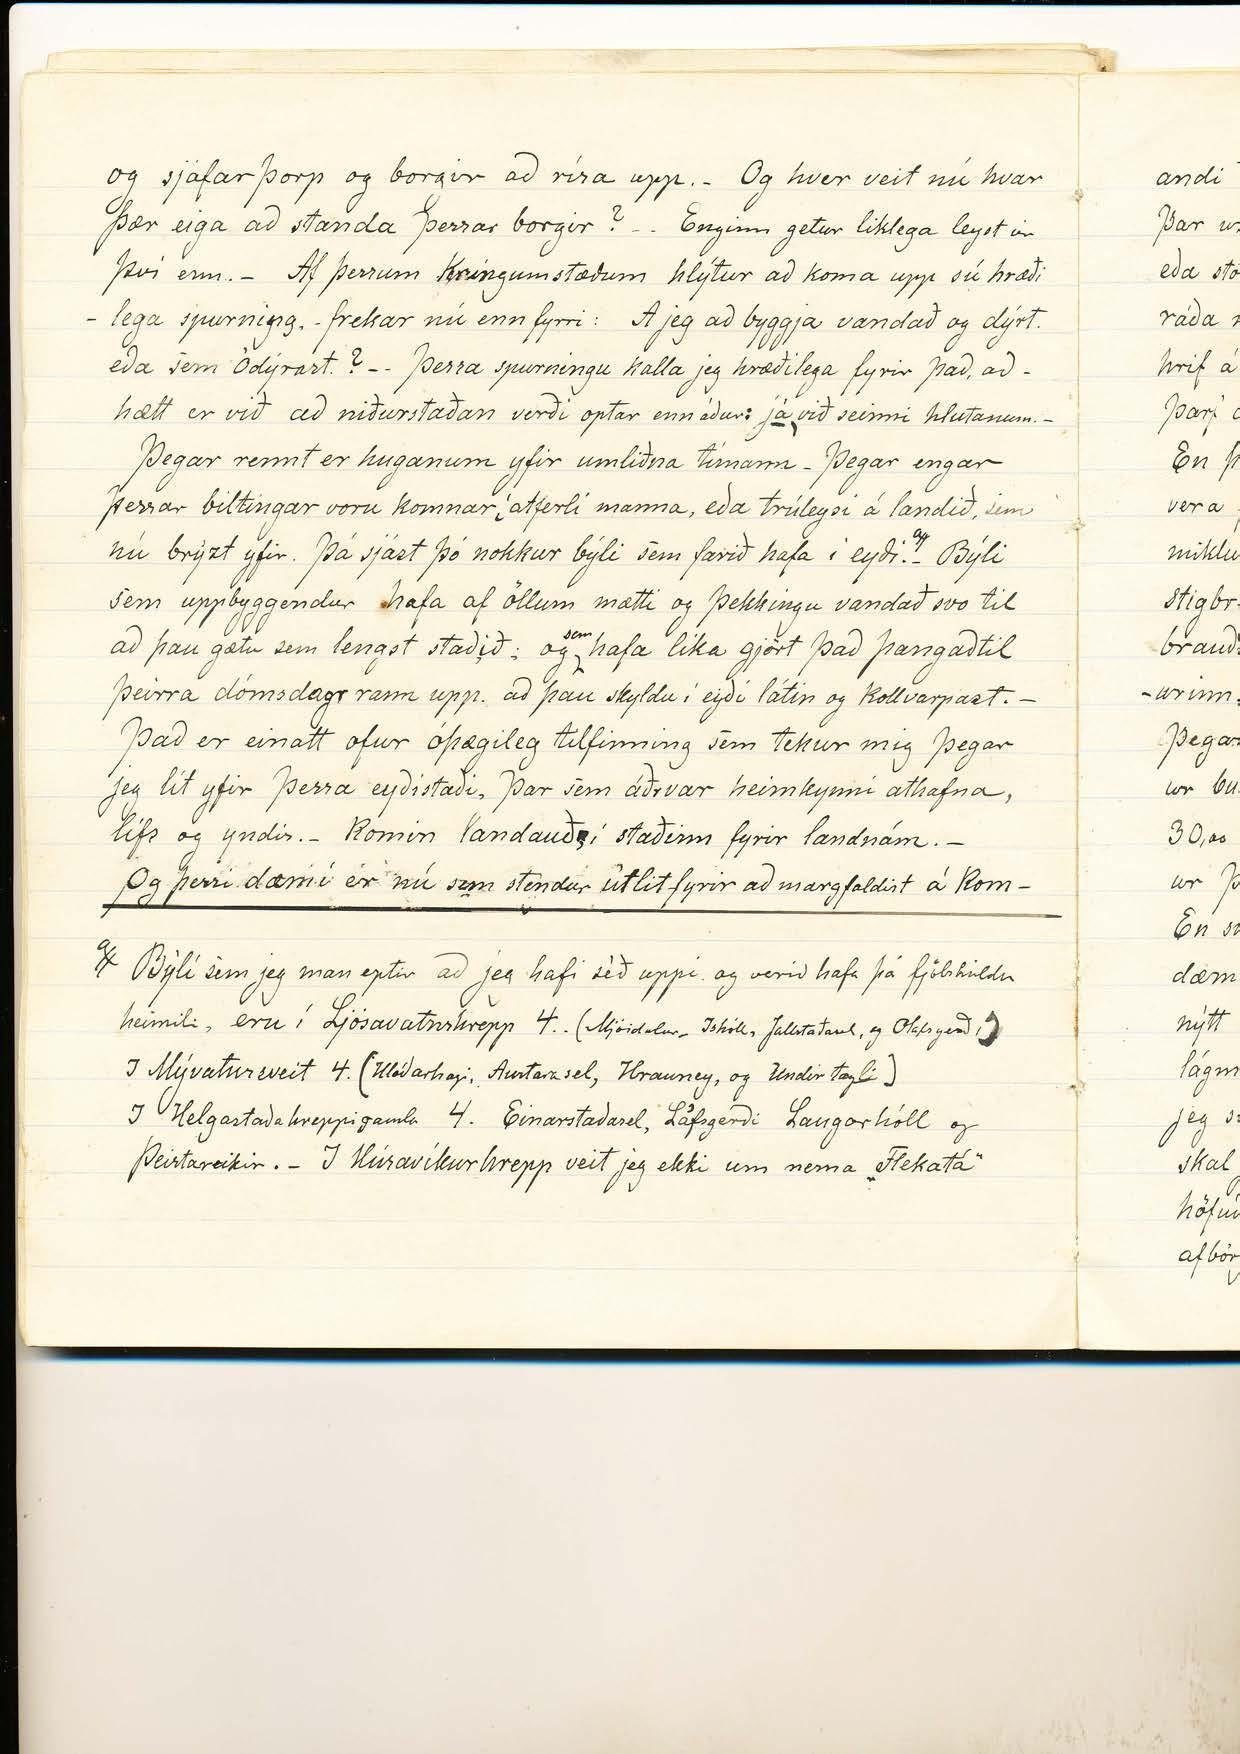 og sjáfarþorp og borgir að rísa upp.- Og hver veit nú hvar
þær eiga að standa þessar borgir? -- Enginn getur líklega leyst úr
því enn.- Af þessum kringumstæðum hlýtur að koma upp sú hræði
- lega spurning, - frekar nú enn fyrri: Á jeg að byggja vandað og dýrt.
eða sem ódýrast.? -- Þessa spurningu kalla jeg hræðilega fyrir það, að -
hætt er við að niðurstaðan verði optar enn áður: já við seinni hlutanum.-
Þegar rennt er huganum yfir umliðna tímann - Þegar engar
þessar biltingar voru komnar í atferli manna, eða trúleysi á landið, sem
nú brýzt yfir. Þá sjást þó nokkur býli sem farið hafa í eyði.- Býli
sem uppbyggendur hafa af öllum mætti og þekkingu vandað svo til
að þau gætu sem lengst staðið; og sem hafa líka gjört það þangaðtil
þeirra dómsdagr rann upp. að þau skyldu í eyði látin og kollvarpast.-
Það er einatt ofur óþægileg tilfinning sem tekur mig þegar
jeg lít yfir þessa eyðistaði, þar sem áðr var heimkynni athafna,
lífs og yndis.- Komin landauðn í staðinn fyrir landnám.-
Og þessi dæmi er nú sem stendur útlit fyrir að margfaldist á kom-
Býli sem jeg man eptir að jeg hafi séð uppi og verið hafa þá fjölskyldu
heimili, eru í Ljósavatnshrepp 4.. (Mjóidalur - Íshóll, Jallstaðasel, og Olafsgerði)
Í Mývatnssveit 4. (Hlöðarhagi, Austarasel, Hrauney, og Undir tagli)
Í Helgastaðahreppi gamla 4. Einarstaðasel, Láfsgerði Laugarhóll og
Þeistareikir.- Í Húsavíkurhrepp veit jeg ekki um nema „Flekatá"
andi
Þar
eða
ráða
hrif á
þarf
En
vera
miklu
þegar
30,00
En
dæm
nýtt
jeg
skal